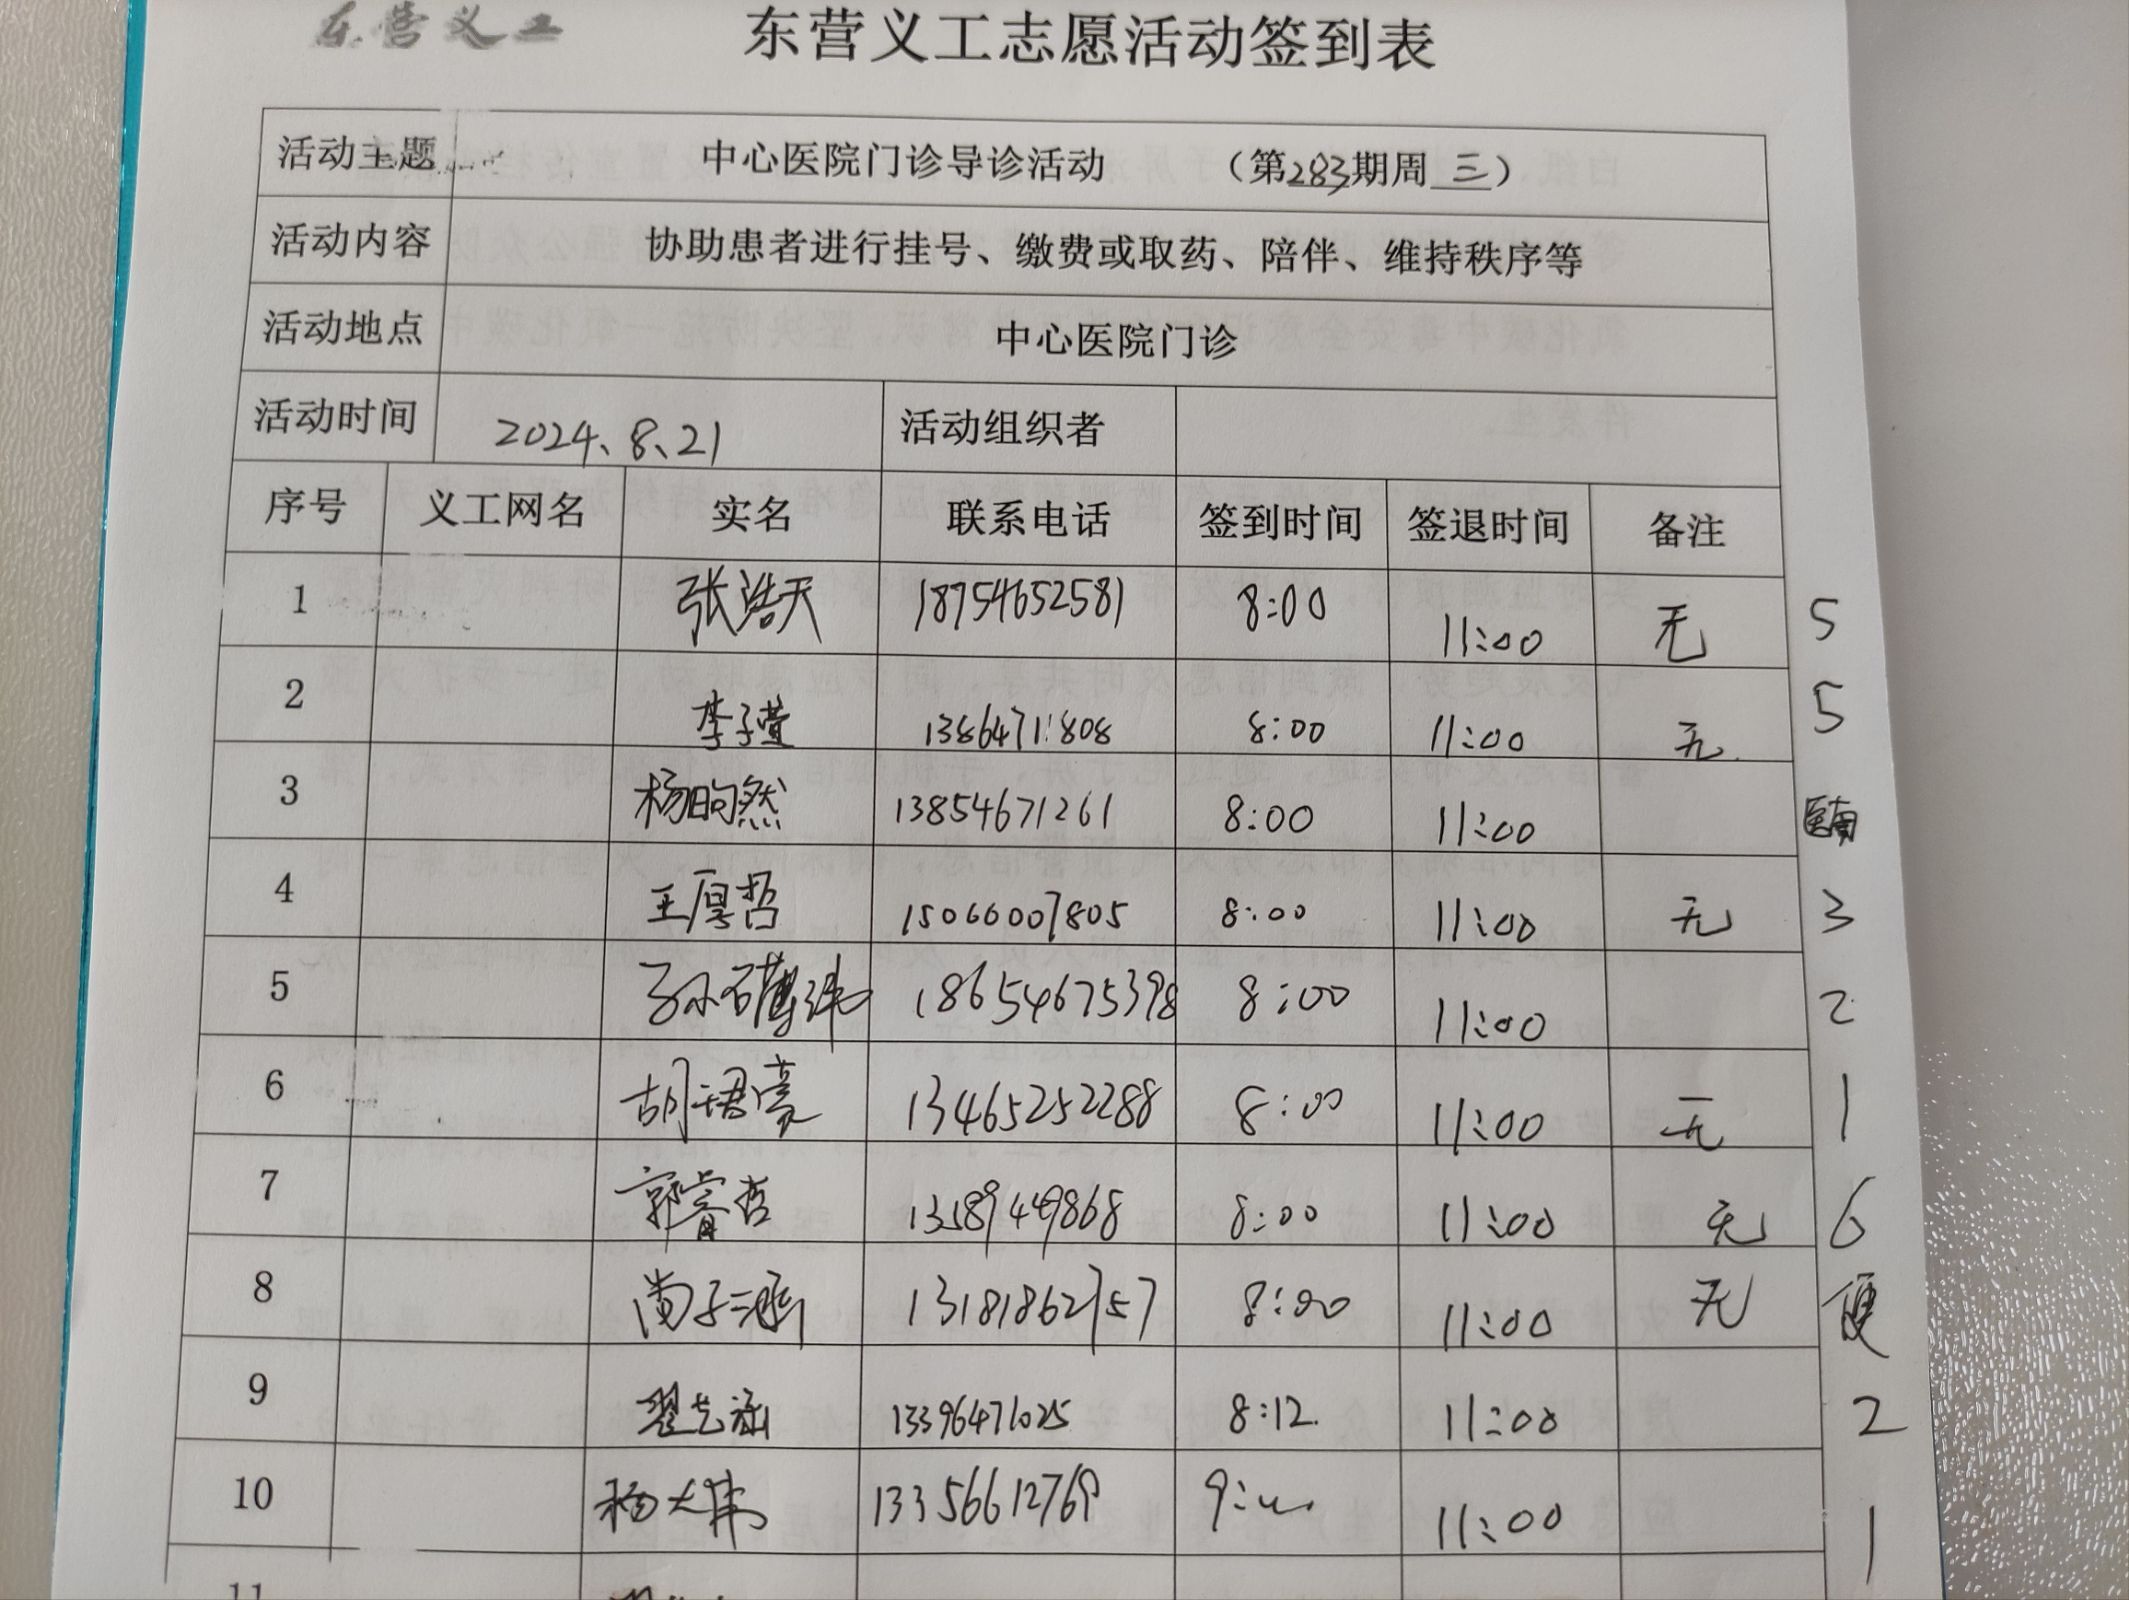 东营义工 东营义工志愿活动签到表
活动主题 中心医院门诊导诊活动 （第283期周三）
活动内容 协助患者进行挂号、缴费或取药、陪伴、维持秩序等
活动地点 中心医院门诊
活动时间 2024、8、21 活动组织者
序号 义工网名 实名 联系电话 签到时间 签退时间 备注
1 张浩天 18754652581 8:00 11:00 无 5
2 李子萱 8:00 11:00 无 5
3 杨昀然 13854671261 8:00 11:00
4 王厚哲 15066007805 8:00 11:00 无 3
5 18654675398 8:00 11:00 2
6 胡珺豪 13465252288 8:00 11:00 无 1
7 郭睿哲 13589449868 8:00 11:00 无 6
8 尚子涵 13181862757 8:00 11:00 无 便
9 13396471025 8:12 11:00 2
10 杨大伟 13356612769 11:00 1
11